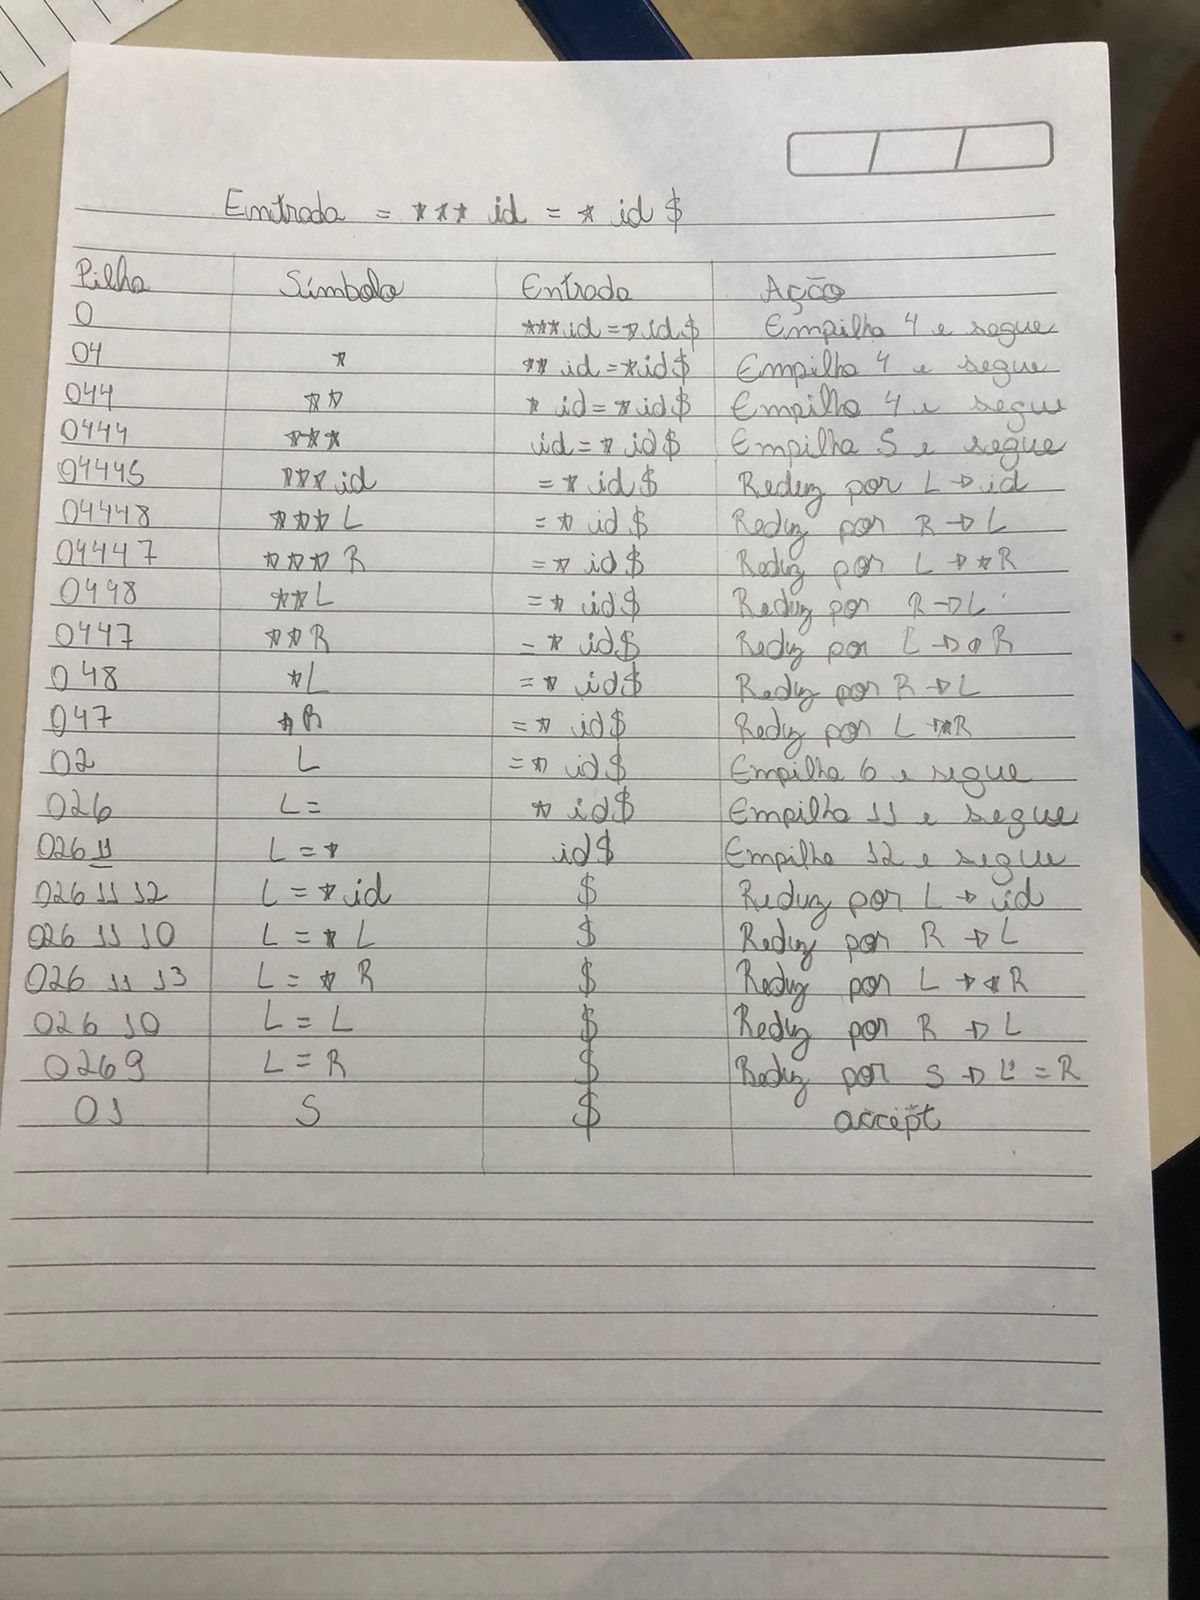 Entrada = *** id = * id $
Pilha Símbolo Entrada Ação
0 ***id=*id$ Empilha 4 e segue
04 * ** id=*id$ Empilha 4 e segue
044 ** * id=*id$ Empilha 4 e segue
0444 *** id=* id$ Empilha 5 e segue
04445 ***id =* id$ Reduz por L → id
04448 ***L =* id$ Reduz por R → L
04447 ***R =* id$ Reduz por L → *R
0448 **L =* id$ Reduz por R → L
0447 **R =* id$ Reduz por L → *R
048 *L =* id$ Reduz por R → L
047 *R =* id$ Reduz por L → *R
02 L =* id$ Empilha 6 e segue
026 L= * id$ Empilha 11 e segue
026 11 L=* id$ Empilha 12 e segue
026 11 12 L=*id $ Reduz por L → id
026 11 10 L=*L $ Reduz por R → L
026 11 13 L=*R $ Reduz por L → *R
026 10 L=L $ Reduz por R → L
0269 L=R $ Reduz por S → L=R
01 S $ accept